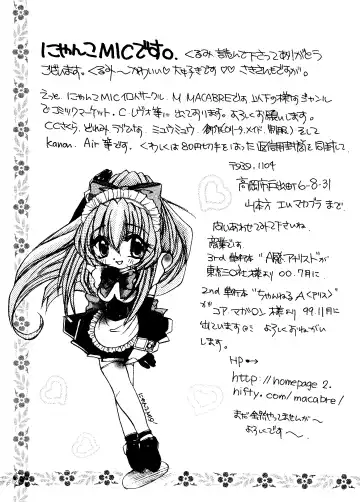 にゃんこMICです。くるみ 読んで下さってありがとう
ございます。くるみ〜かわいい 大好きです♡♡ さきさんもですが。
えっと にゃんこMIC イコールサークル、M MACABREです 以下の様なジャンル
でコミックマーケット、C.レヴォ等に出ております。よろしくお願いします。
CCさくら、どれみ、ラブひな、ミュウミュウ、創作(ロリータ、メイド、制服) そして
Kanon、Air 等です。くわしくは80円切手をはった返信用封筒を同封して
〒939-1104
高岡市戸出町6-8-31
山本方 エム マカブラ まで。
問い合わせてみて下さいね。
商業です。
3rd 単行本 "A級アリスト" が
東京三世社様より 00.7月に
2nd 単行本 "ちゃんねるA<アリス>"
が コアマガジン様より 99.11月に
出ています よろしくおねがい
します。
HP→
http://homepage2.
nifty.com/macabre/
まだ全然やってませんが〜
よろしくです〜
にゃんこMIC